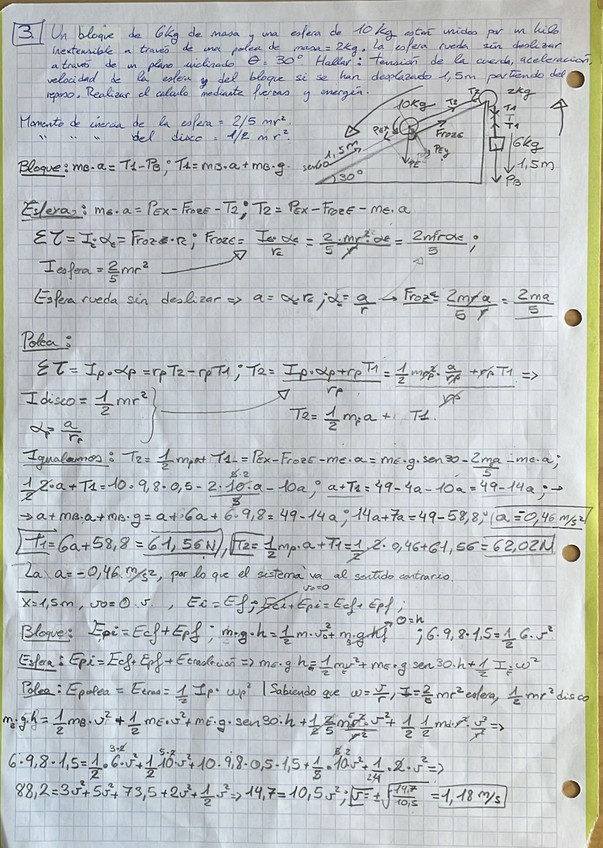 3. Un bloque de 6kg de masa y una esfera de 10kg están unidos por un hilo
inextensible a través de una polea de masa = 2kg. La esfera rueda sin deslizar
a través de un plano inclinado θ = 30° Hallar: Tensión de la cuerda, aceleración,
velocidad de la esfera y del bloque si se han desplazado 1,5m partiendo del
reposo. Realizar el calculo mediante fuerzas y energía.
Momento de inercia de la esfera = 2/5 mr².
" " " del disco = 1/2 mr².
10kg T2 T2 2kg
T1
T1
FroZE
PEx
PEy
PE
6kg
1,5m
1,5m
30°
PB
Bloque: mB·a = T1-PB; T1 = mB·a + mB·g.
Esfera: mE·a = PEx - FroZE - T2; T2 = PEx - FroZE - mE·a
Στ = I·α = FroZE·R; FroZE = IE·αE/rE = 2/5 · mr²·αE/r = 2mrαE/5;
Iesfera = 2/5 mr²
Esfera rueda sin deslizar => a = αE rE; αE = a/r → FroZE = 2mra/5r = 2ma/5
Polea:
Στ = Ip·αp = rpT2 - rpT1; T2 = Ip·αp + rpT1/rp = 1/2 mrp²·a/rp + rpT1/rp =>
Idisco = 1/2 mr²
T2 = 1/2 mp·a + T1.
αp = a/rp
Igualamos: T2 = 1/2 mp·a + T1 = PEx - FroZE - mE·a = mE·g·sen30 - 2ma/5 - mE·a;
1/2 2·a + T1 = 10·9,8·0,5 - 2·10·a/5 - 10a; a + T1 = 49 - 4a - 10a = 49 - 14a; →
→ a + mB·a + mB·g = a + 6a + 6·9,8 = 49 - 14a; 14a + 7a = 49 - 58,8; a = -0,46 m/s²
T1 = 6a + 58,8 = 61,56N, T2 = 1/2 mp·a + T1 = 1/2 · 2 · 0,46 + 61,56 = 62,02N
La a = -0,46 m/s², por lo que el sistema va al sentido contrario.
X = 1,5m, v0 = 0, Ei = Ef; Eci + Epi = Ecf + Epf; v=0
Bloque: Epi = Ecf + Epf; m·g·h = 1/2 m·v² + m·g·hf 0=h; 6·9,8·1,5 = 1/2 6·v²
Esfera: Epi = Ecf + Epf + Ecrotación => mE·g·h = 1/2 mv² + mE·g·sen30·h + 1/2 IE·ω²
Polea: Epolea = Ecrot = 1/2 Ip·ωp² | Sabiendo que ω = v/r, I = 2/5 mr² esfera, 1/2 mr² disco
m·g·h = 1/2 mB·v² + 1/2 mE·v² + mE·g·sen30·h + 1/2 2/5 mr²·v²/r² + 1/2 1/2 m·r²·v²/r² =>
6·9,8·1,5 = 1/2·6·v² + 1/2 10·v² + 10·9,8·0,5·1,5 + 1/5·10v² + 1/4·2·v² =>
88,2 = 3v² + 5v² + 73,5 + 2v² + 1/2 v² => 14,7 = 10,5v²; v = ±√14,7/10,5 = 1,18 m/s